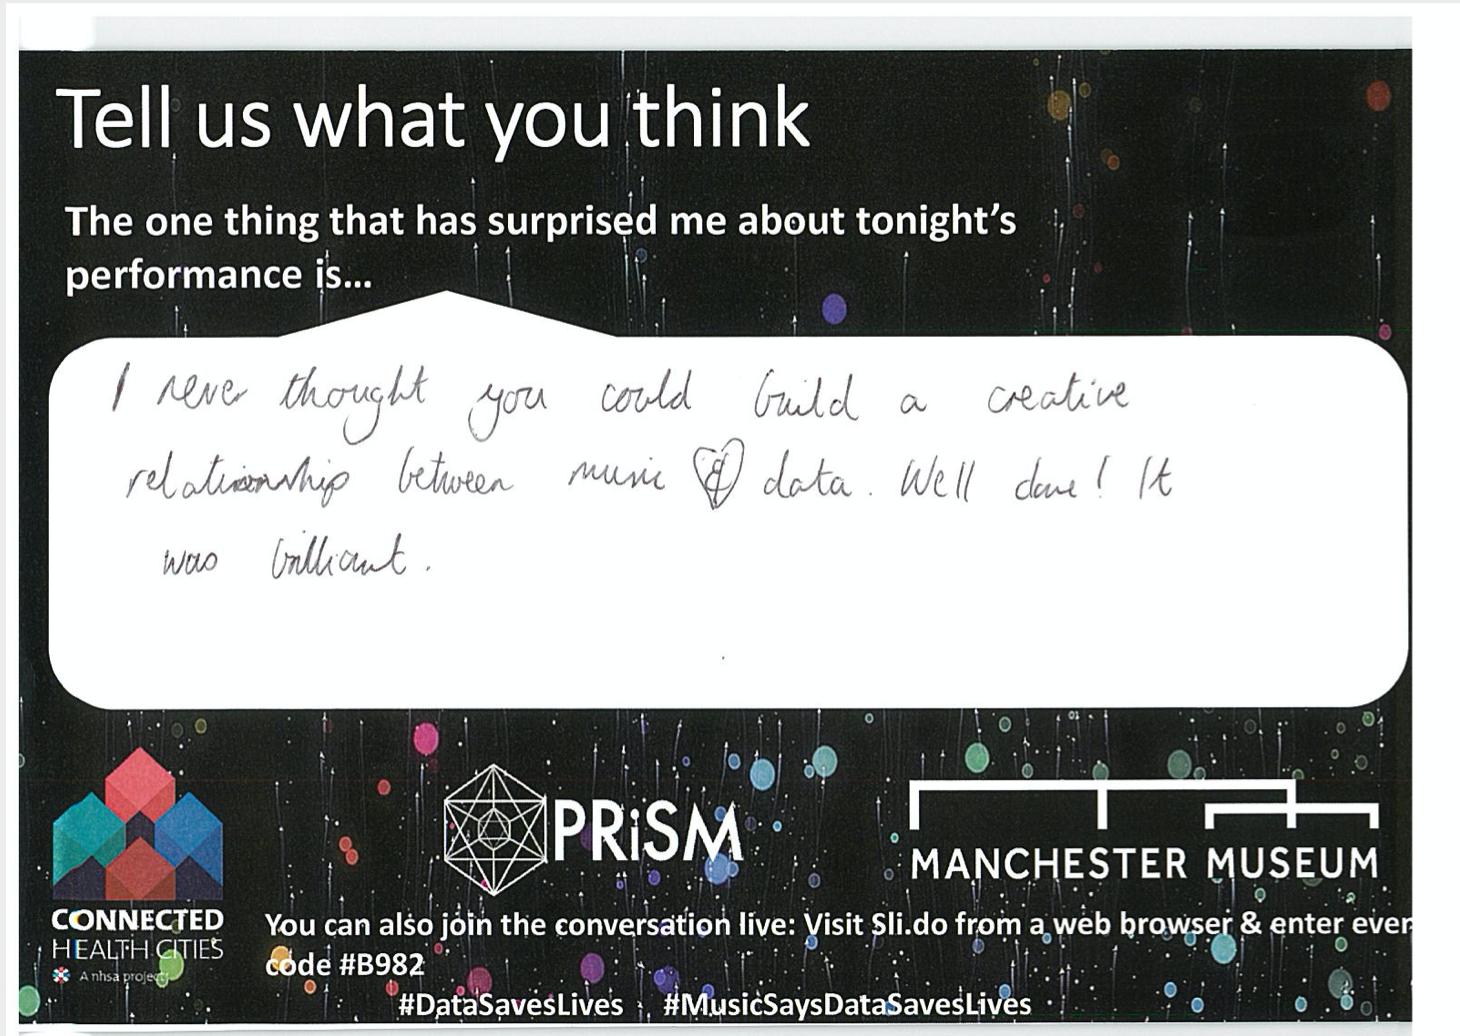 Tell us what you think
The one thing that has surprised me about tonight's
performance is...
I never thought you could build a creative
relationship between music & data. Well done! It
was brilliant.
PRiSM
MANCHESTER MUSEUM
CONNECTED
HEALTH CITIES
A nhsa project
You can also join the conversation live: Visit Sli.do from a web browser & enter even
code #B982
#DataSavesLives #MusicSaysDataSavesLives